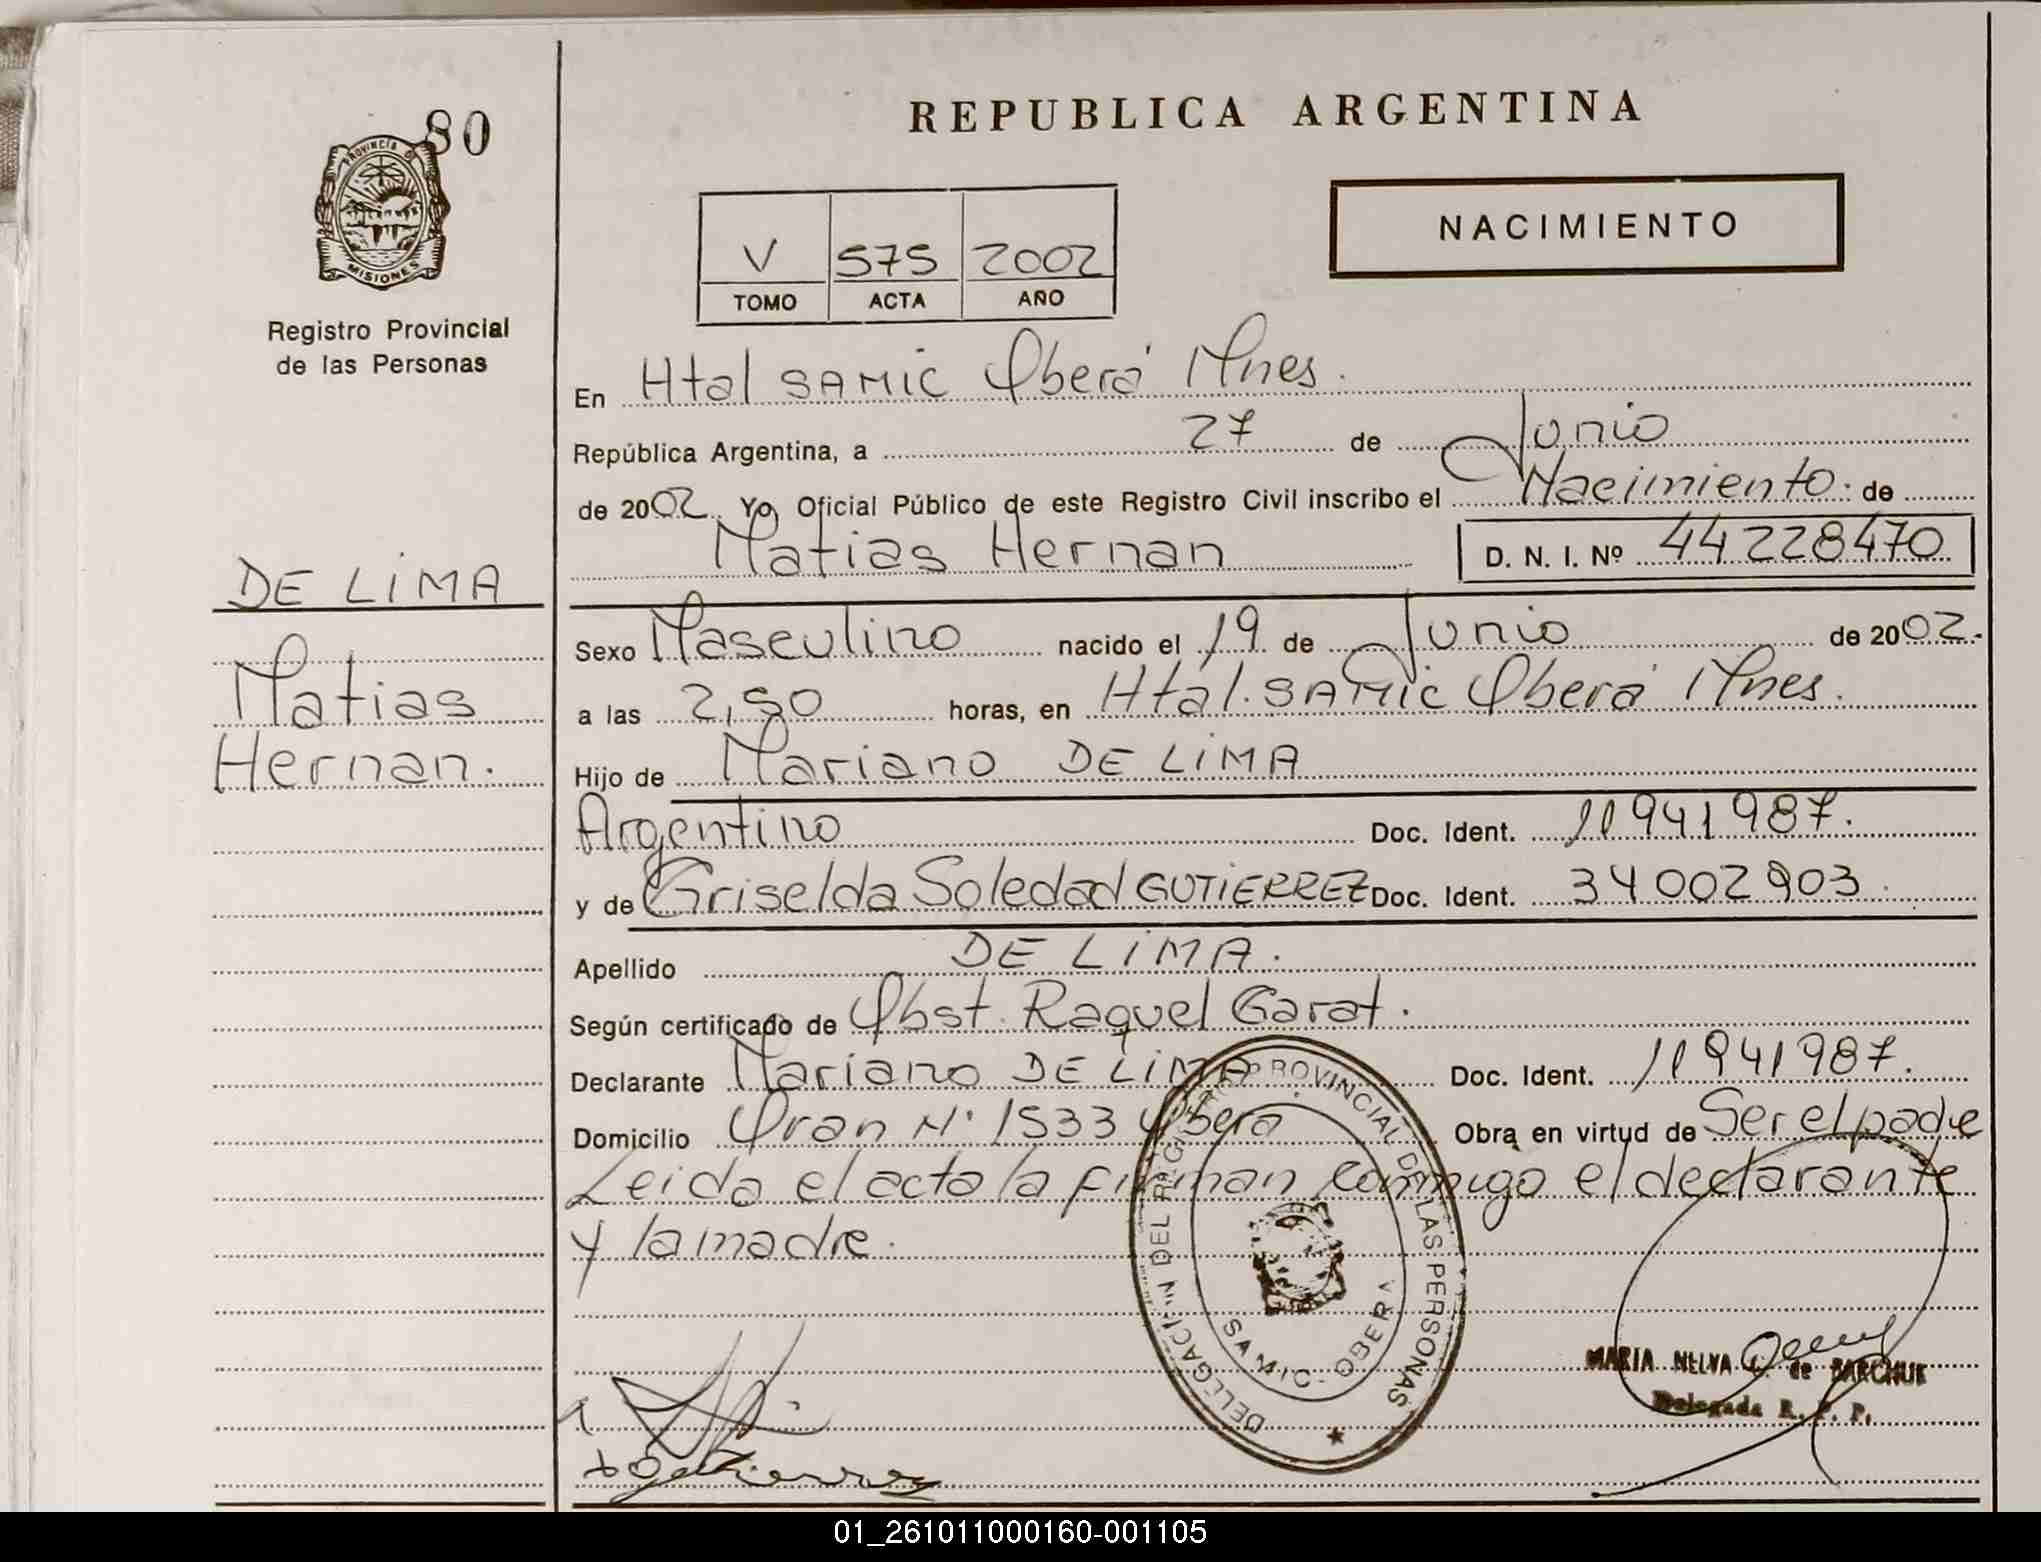 80
PROVINCIA DE
MISIONES
Registro Provincial
de las Personas
REPUBLICA ARGENTINA
NACIMIENTO
V 575 2002
TOMO ACTA AÑO
En Htal SAMIC Oberá Mnes.
República Argentina, a 27 de Junio
de 2002. Yo, Oficial Público de este Registro Civil inscribo el Nacimiento de
Matias Hernan D. N. I. Nº 44228470
DE LIMA
Matias
Hernan.
Sexo Masculino nacido el 19 de Junio de 2002.
a las 2,50 horas, en Htal. SAMIC Oberá Mnes.
Hijo de Mariano DE LIMA
Argentino Doc. Ident. 11941987.
y de Griselda Soledad GUTIERREZ Doc. Ident. 34002903.
Apellido DE LIMA.
Según certificado de Obst. Raquel Garat.
Declarante Mariano DE LIMA Doc. Ident. 11941987.
Domicilio Oran Nº 1533 Oberá Obra en virtud de Ser el padre
Leida el acta la firman conmigo el declarante
y la madre.
DELEGACION DEL REGISTRO PROVINCIAL DE LAS PERSONAS
SAMIC - OBERA
MARIA NELVA de BARCHUK
Delegada R. P. P.
01_261011000160-001105